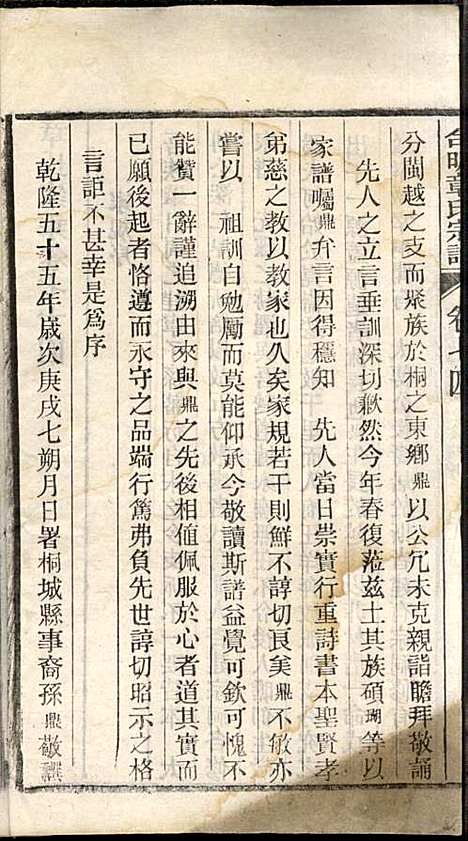 分閩越之支而聚族於桐之東鄉鼎以公冗未克親詣瞻拜敬誦
先人之立言垂訓深切歉然今年春復蒞茲土其族碩瑚等以
家譜囑鼎弁言因得穩知　先人當日崇實行重詩書本聖賢孝
弟慈之教以教家也久矣家規若干則鮮不諄切良美鼎不敏亦
嘗以　祖訓自勉勵而莫能仰承今敬讀斯譜益覺可欽可愧不
能贊一辭謹追溯由來與鼎之先後相值佩服於心者道其實而
已願後起者恪遵而永守之品端行篤弗負先世諄切昭示之格
言詎不甚幸是爲序
乾隆五十五年歲次庚戌七朔月日署桐城縣事裔孫鼎敬譔
章氏宗譜